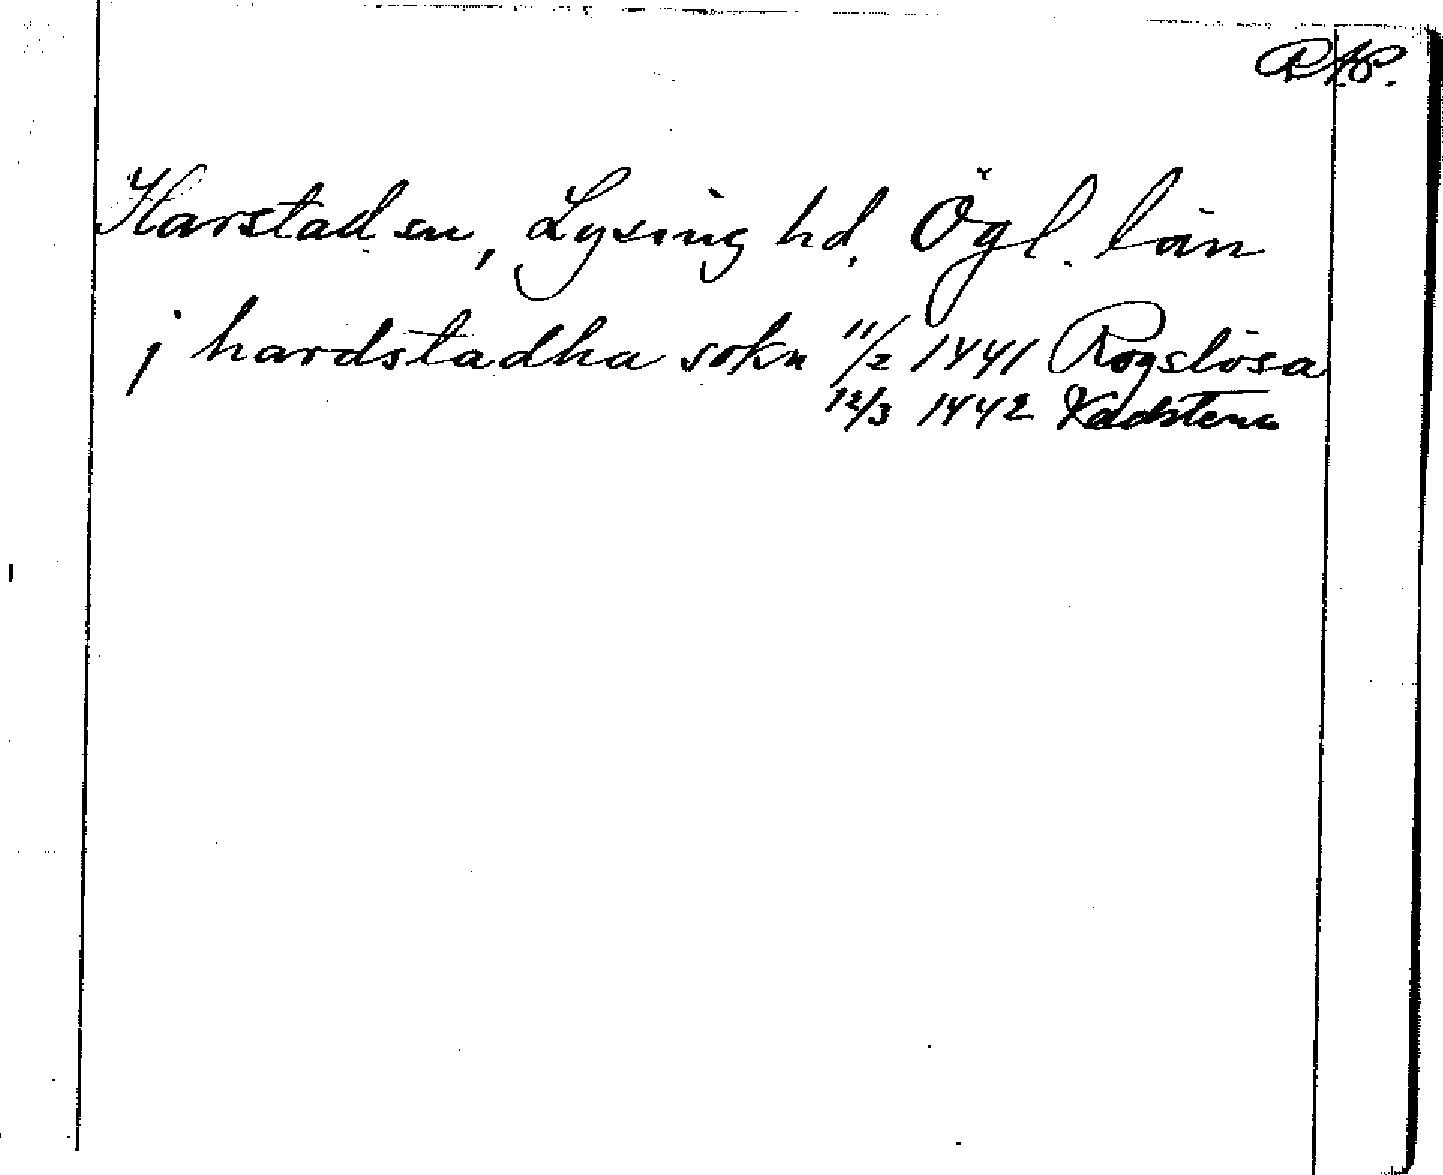 RAP.
Harstad sn, Lysing hd. Ögl. län
j hardstadha sokn 11/2 1441 Rogslösa
12/3 1442 Vadstena